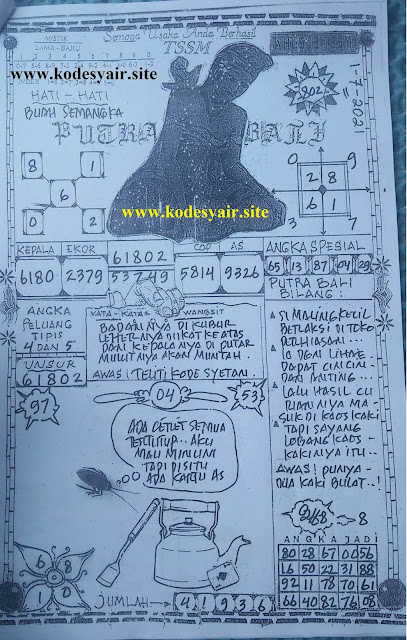 MISTIK
LAMA - BARU
Semoga Usaha Anda Berhasil
TSSM
www.kodesyair.site
HATI - HATI
BUAH SEMANGKA
802
1-7-2021
PUTRA BALI
8 1
6
0 2
0 9
2 8
6 1
3 7
www.kodesyair.site
KEPALA EKOR 61802 COP AS
6180 2379 53749 5814 9326
ANGKA SPESIAL
65 13 87 04 29
PUTRA BALI
BILANG :
SI MALING KECIL
BERAKSI DI TOKO
PERHIASAN...
IA DENI LIHAE
DAPAT CINCIN -
DAN ANTING...
LALU HASIL CU
RIANNYA MA -
SUK DI KAOS KAKI
TAPI SAYANG
LOBANG KAOS -
KAKINYA ITU...
AWAS! PUNYA -
DUA KAKI BULAT..!
ANGKA
PELUANG
TIPIS
4 DAN 5
UNSUR
61802
KATA - KATA WANGSIT
BADANNYA DI KUBUR
LEHERNYA DIIKAT KEATAS
DAN KEPALANYA DI PUTAR
MULUTNYA AKAN MUNTAH.
AWAS : TELITI KODE SYETAN.
97
04
53
ADA CERET SEMUA
TERTUTUP... AKU
MAU MINUM
TAPI DISITU
ADA KARTU AS
6 8
1 0
JUMLAH → 4 1 9 3 6
9268 - 8
ANGKA JADI
80 28 67 00 56
16 50 22 31 88
92 11 78 70 61
66 40 82 76 08